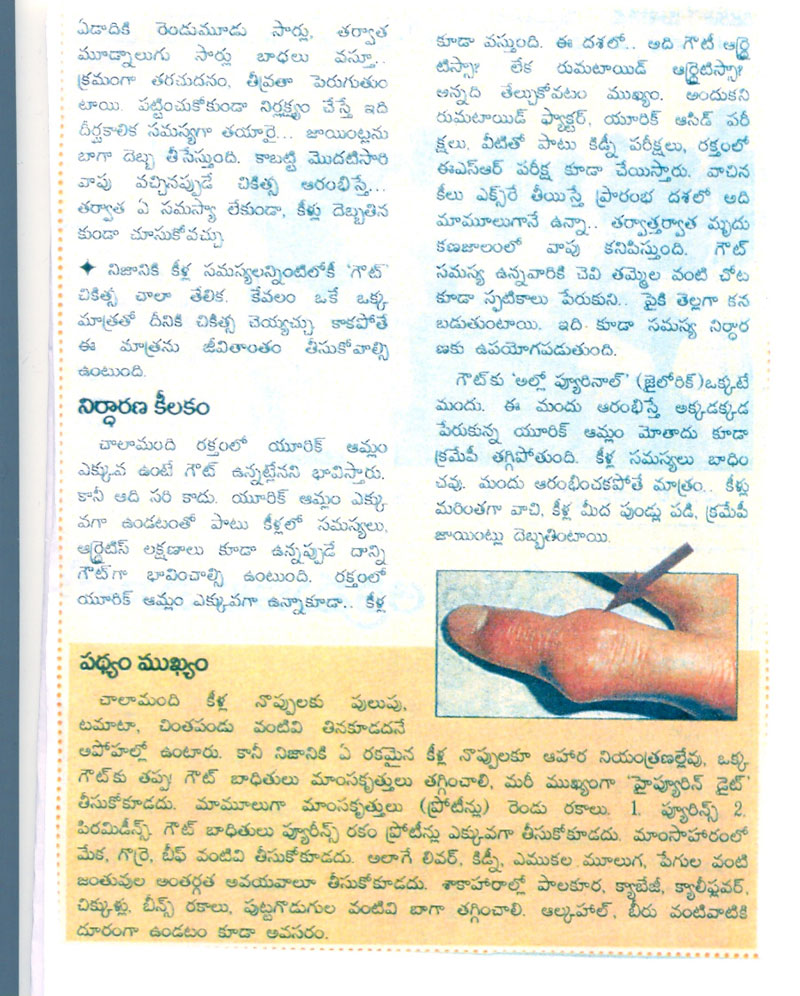 ఏడాదికి రెండుమూడు సార్లు, తర్వాత
మూడ్నాలుగు సార్లు బాధలు వస్తూ..
క్రమంగా తరచుదనం, తీవ్రతా పెరుగుతుం
టాయి. పట్టించుకోకుండా నిర్లక్ష్యం చేస్తే ఇది
దీర్ఘకాలిక సమస్యగా తయారై... జాయింట్లను
బాగా దెబ్బ తీసేస్తుంది. కాబట్టి మొదటిసారి
వాపు వచ్చినప్పుడే చికిత్స ఆరంభిస్తే...
తర్వాత ఏ సమస్యా లేకుండా, కీళ్లు దెబ్బతిన
కుండా చూసుకోవచ్చు
✦ నిజానికి కీళ్ల సమస్యలన్నింటిలోకీ 'గౌట్'
చికిత్స చాలా తేలిక. కేవలం ఒకే ఒక్క
మాత్రతో దీనికి చికిత్స చెయ్యచ్చు కాకపోతే
ఈ మాత్రను జీవితాంతం తీసుకోవాల్సి
ఉంటుంది.
నిర్ధారణ కీలకం
చాలామంది రక్తంలో యూరిక్ ఆమ్లం
ఎక్కువ ఉంటే గౌట్ ఉన్నట్లేనని భావిస్తారు.
కానీ అది సరి కాదు. యూరిక్ ఆమ్లం ఎక్కు
వగా ఉండటంతో పాటు కీళ్లలో సమస్యలు,
ఆర్థ్రైటిస్ లక్షణాలు కూడా ఉన్నప్పుడే దాన్ని
గౌట్‌గా భావించాల్సి ఉంటుంది. రక్తంలో
యూరిక్ ఆమ్లం ఎక్కువగా ఉన్నాకూడా.. కీళ్ల
కూడా వస్తుంది. ఈ దశలో.. అది గౌటీ ఆర్థ్రై
టిస్సా? లేక రుమటాయిడ్ ఆర్థ్రైటిస్సా?
అన్నది తేల్చుకోవటం ముఖ్యం. అందుకని
రుమటాయిడ్ ఫ్యాక్టర్, యూరిక్ ఆసిడ్ పరీ
క్షలు, వీటితో పాటు కిడ్నీ పరీక్షలు, రక్తంలో
ఈఎస్ఆర్ పరీక్ష కూడా చేయిస్తారు. వాచిన
కీలు ఎక్స్‌రే తీయిస్తే ప్రారంభ దశలో అది
మామూలుగానే ఉన్నా.. తర్వాత్తర్వాత మృదు
కణజాలంలో వాపు కనిపిస్తుంది. గౌట్
సమస్య ఉన్నవారికి చెవి తమ్మెల వంటి చోట
కూడా స్పటికాలు పేరుకుని.. పైకి తెల్లగా కన
బడుతుంటాయి. ఇది కూడా సమస్య నిర్ధార
ణకు ఉపయోగపడుతుంది.
గౌట్‌కు 'అల్లో ప్యూరినాల్' (జైలోరిక్) ఒక్కటే
మందు. ఈ మందు ఆరంభిస్తే అక్కడక్కడ
పేరుకున్న యూరిక్ ఆమ్లం మోతాదు కూడా
క్రమేపీ తగ్గిపోతుంది. కీళ్ల సమస్యలు బాధిం
చవు. మందు ఆరంభించకపోతే మాత్రం.. కీళ్లు
మరింతగా వాచి, కీళ్ల మీద పుండ్లు పడి, క్రమేపీ
జాయింట్లు దెబ్బతింటాయి.
పథ్యం ముఖ్యం
చాలామంది కీళ్ల నొప్పులకు పులుపు,
టమాటా, చింతపండు వంటివి తినకూడదనే
అపోహల్లో ఉంటారు. కానీ నిజానికి ఏ రకమైన కీళ్ల నొప్పులకూ ఆహార నియంత్రణల్లేవు, ఒక్క
గౌట్‌కు తప్ప! గౌట్ బాధితులు మాంసకృత్తులు తగ్గించాలి, మరీ ముఖ్యంగా 'హైప్యూరిన్ డైట్'
తీసుకోకూడదు. మామూలుగా మాంసకృత్తులు (ప్రోటీన్లు) రెండు రకాలు. 1. ప్యూరిన్స్ 2.
పిరమిడీన్స్. గౌట్ బాధితులు ప్యూరీన్స్ రకం ప్రోటీన్లు ఎక్కువగా తీసుకోకూడదు. మాంసాహారంలో
మేక, గొర్రె, బీఫ్ వంటివి తీసుకోకూడదు. అలాగే లివర్, కిడ్నీ, ఎముకల మూలుగ, పేగుల వంటి
జంతువుల అంతర్గత అవయవాలూ తీసుకోకూడదు. శాకాహారాల్లో పాలకూర, క్యాబేజీ, క్యాలీఫ్లవర్,
చిక్కుళ్లు, బీన్స్ రకాలు, పుట్టగొడుగుల వంటివి బాగా తగ్గించాలి. ఆల్కహాల్, బీరు వంటివాటికి
దూరంగా ఉండటం కూడా అవసరం.